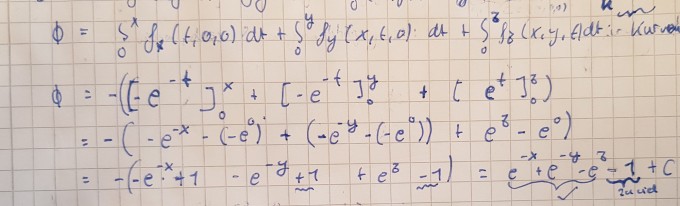 ϕ = ∫₀ˣ fₓ(t,0,0) dt + ∫₀ʸ f_y(x,t,0) dt + ∫₀ᶻ f_z(x,y,t) dt :
ϕ = -([-e^-t]₀ˣ + [-e^-t]₀ʸ + [e^t]₀ᶻ)
= -(-e^-x - (-e⁰) + (-e^-y - (-e⁰)) + e^z - e⁰)
= -(-e^-x + 1 - e^-y + 1 + e^z - 1) = e^-x + e^-y - e^z - 1 + C
zu viel